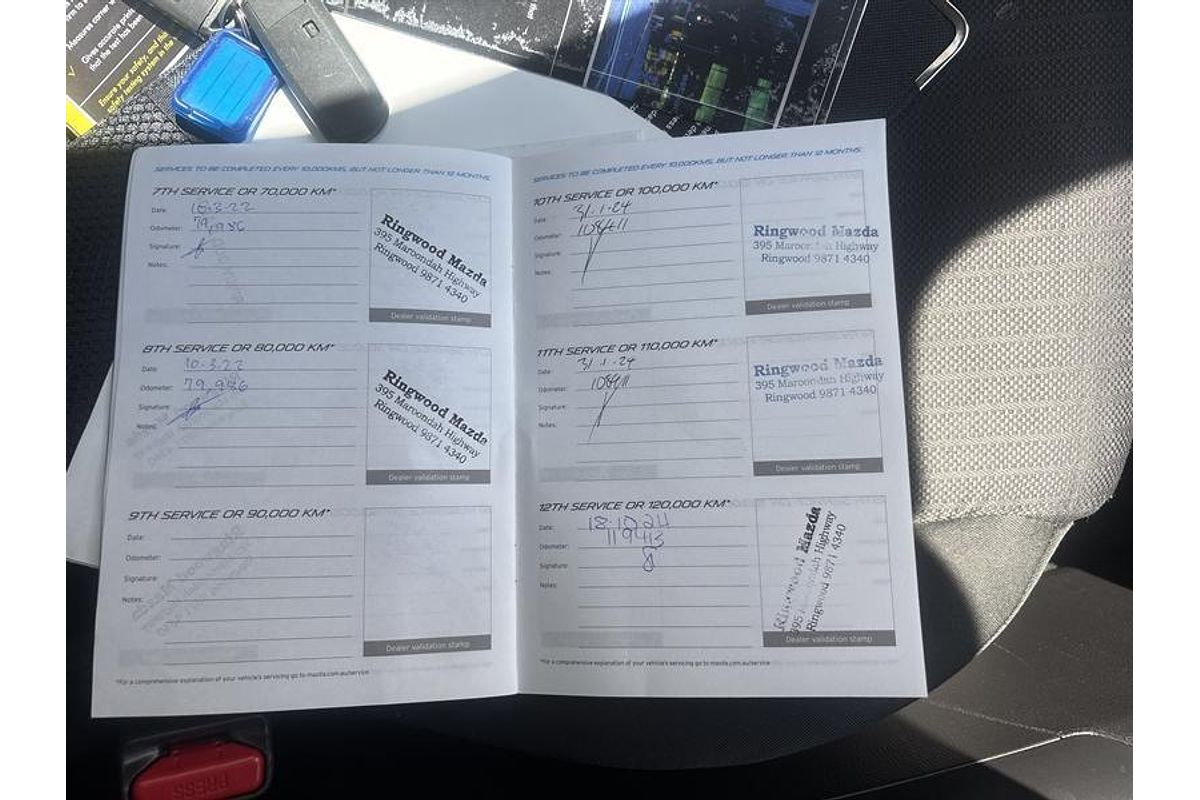 Measure corner w
Gives accurate
that the test has been
Ensure your safety, and the
safety testing system in the
that
SERVICES TO BE COMPLETED EVERY 10,000KMS, BUT NOT LONGER THAN 12 MONTHS.
7TH SERVICE OR 70,000 KM*
Date: 10.3.22
Odometer: 79,986
Signature:
Notes:
Ringwood Mazda
395 Maroondah Highway
Ringwood 9871 4340
Dealer validation stamp
8TH SERVICE OR 80,000 KM*
Date: 10.3.22
Odometer: 79,986
Signature:
Notes:
Ringwood Mazda
395 Maroondah Highway
Ringwood 9871 4340
Dealer validation stamp
9TH SERVICE OR 90,000 KM*
Date:
Odometer:
Signature:
Notes:
Dealer validation stamp
*For a comprehensive explanation of your vehicle's servicing go to mazda.com.au/service
SERVICES TO BE COMPLETED EVERY 10,000KMS, BUT NOT LONGER THAN 12 MONTHS.
10TH SERVICE OR 100,000 KM*
Date: 31.1.24
Odometer: 108411
Signature:
Notes:
Ringwood Mazda
395 Maroondah Highway
Ringwood 9871 4340
Dealer validation stamp
11TH SERVICE OR 110,000 KM*
Date: 31.1.24
Odometer: 108411
Signature:
Notes:
Ringwood Mazda
395 Maroondah Highway
Ringwood 9871 4340
Dealer validation stamp
12TH SERVICE OR 120,000 KM*
Date: 18.10.24
Odometer: 119413
Signature:
Notes:
Ringwood Mazda
395 Maroondah Highway
Ringwood 9871 4340
Dealer validation stamp
*For a comprehensive explanation of your vehicle's servicing go to mazda.com.au/service
PRESS